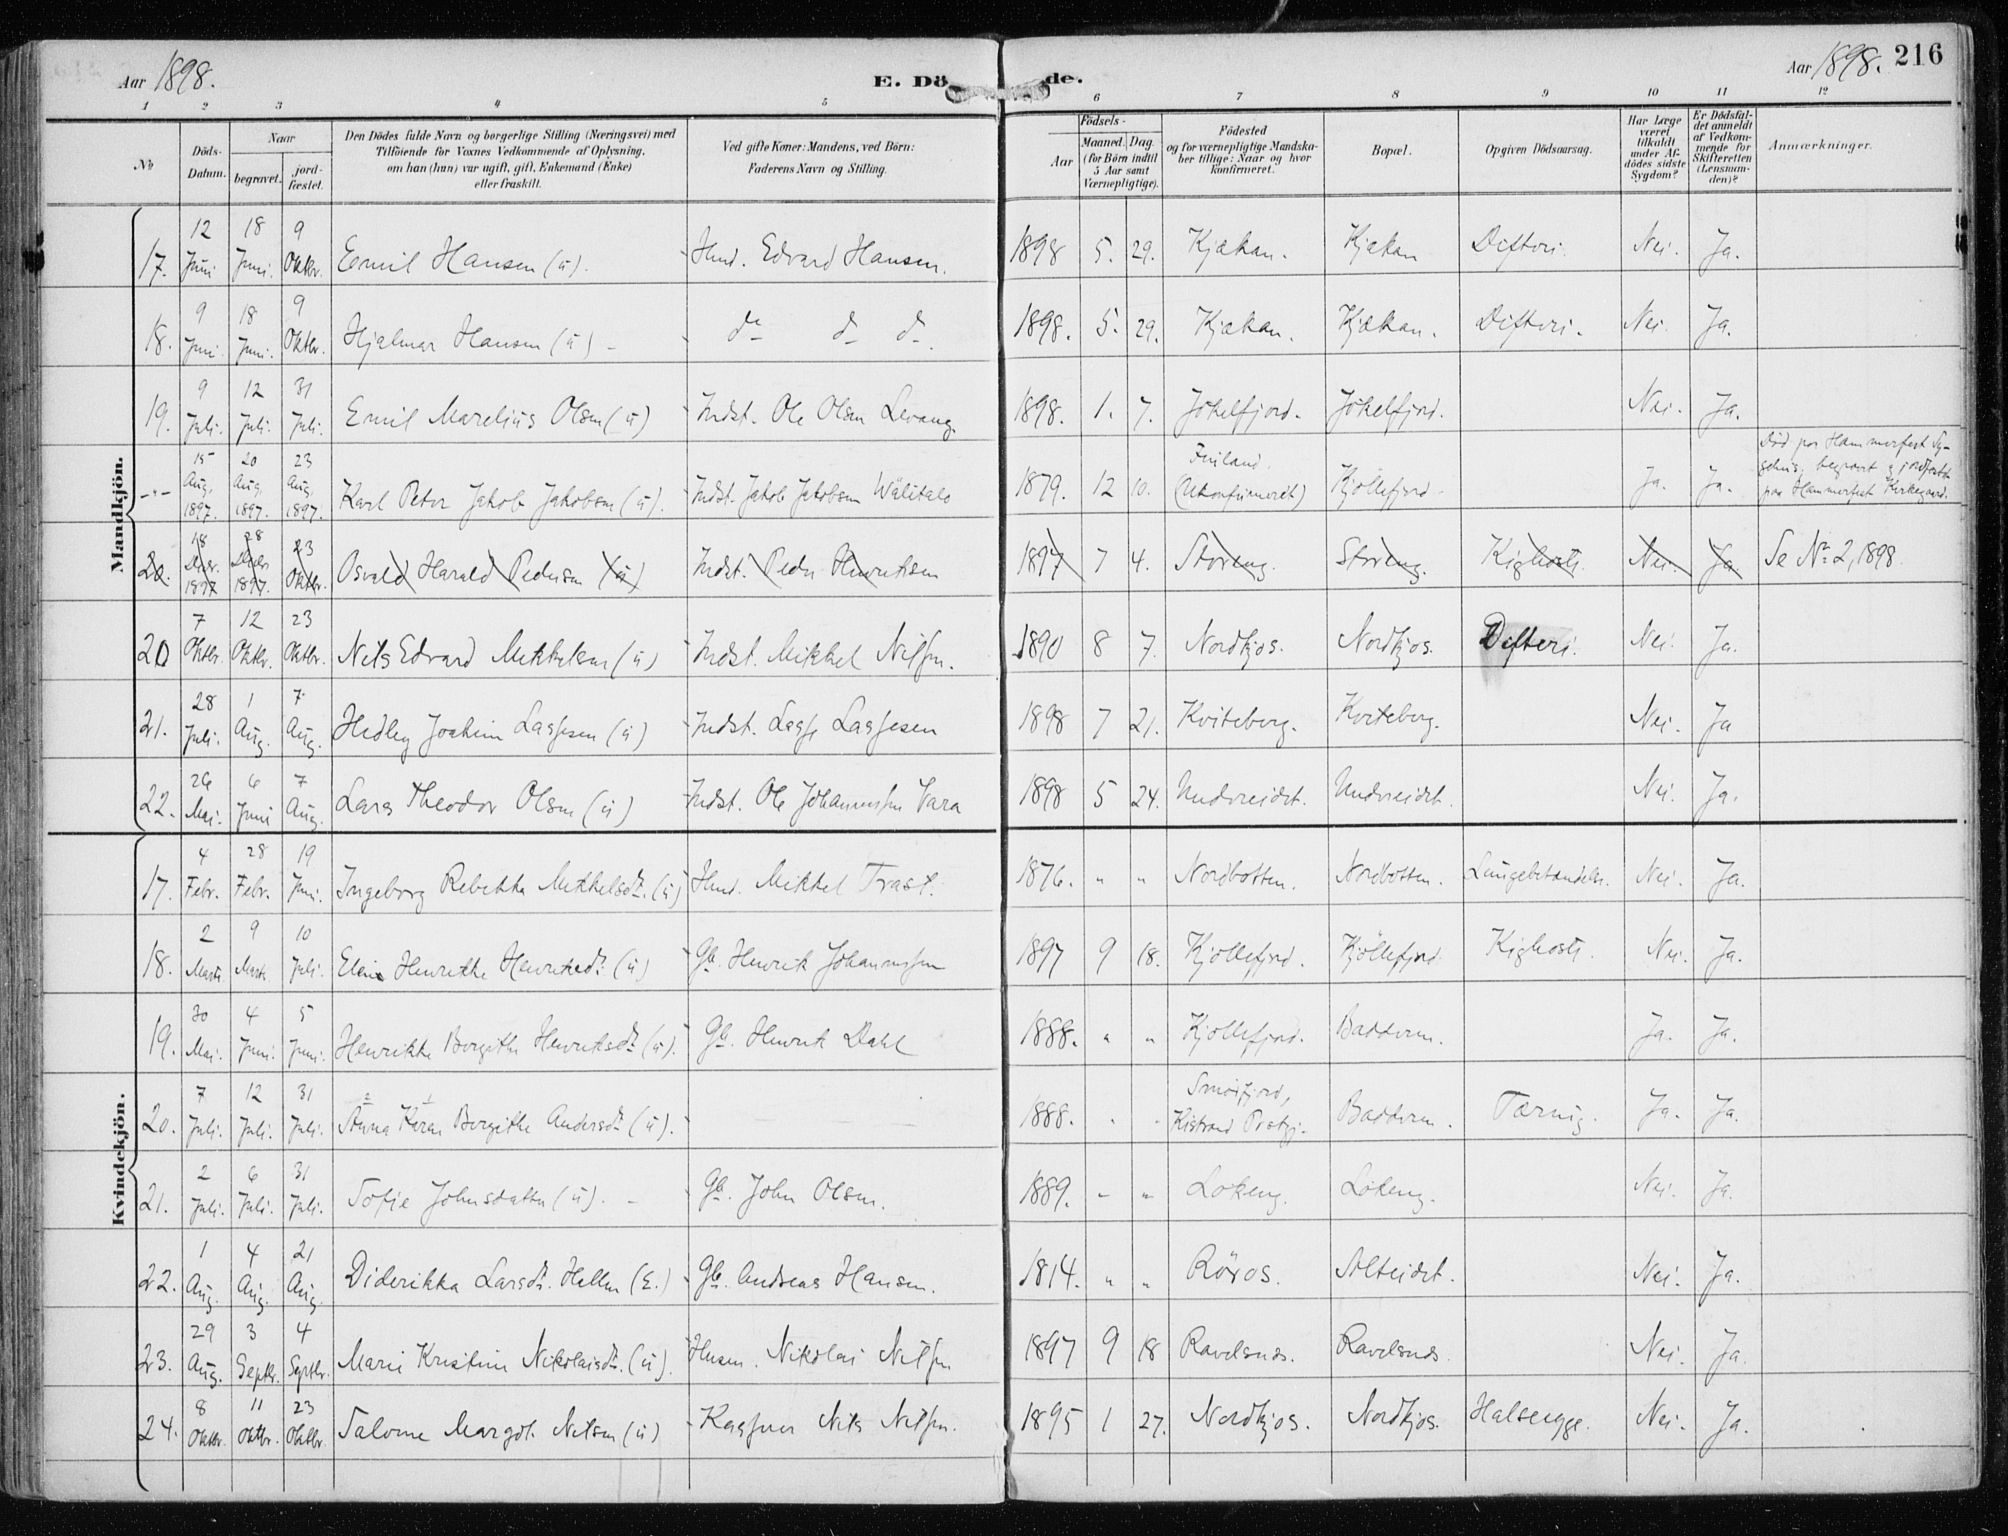 Aar 1898. E. Dö de. Aar 1898. 216
1 2 3 4 5 6 7 8 9 10 11 12
No Döds-Datum. Naar begravet. jord-fæstet. Den Dödes fulde Navn og borgerlige Stilling (Næringsvei) med Tilföiende for Voxnes Vedkommende af Oplysning, om han (hun) var ugift, gift, Enkemand (Enke) eller fraskilt. Ved gifte Koner: Mandens, ved Börn: Faderens Navn og Stilling. Födsels- Aar Maaned. Dag. (for Börn indtil 5 Aar samt Værnepligtige). Födested og for værnepligtige Mandska-ber tillige: Naar og hvor konfirmeret. Bopæl. Opgiven Dödsaarsag. Har Læge været tilkaldt under Af-dödes sidste Sygdom? Er Dödsfal-det anmeldt af Vedkom-mende for Skifteretten (Lensman-den)? Anmærkninger.
Mandkjön.
17. 12 Juni 18 Juni. 9 Oktbr. Emil Hansen (ú). Hmd. Edvard Hansen. 1898 5. 29. Kjækan. Kjækan Difteri. Nei. Ja.
18. 9 Juni. 18 Juni. 9 Oktbr. Hjalmar Hansen (ú) - do do do. 1898. 5. 29. Kjækan. Kjækan. Difteri. Nei. Ja.
19. 9 Juli. 12 Juli. 31 Juli. Emil Marelius Olsen (ú) Indst. Ole Olsen Levang. 1898. 1. 7. Jökelfjord. Jökelfjord. Nei. Ja.
-"- 15 Aug. 1897. 20 Aug. 1897. 23 Aug. 1897. Karl Peter Jakob Jakobsen (ú). Indst. Jakob Jakobsen Wälitalo 1879. 12 10. Finland. (Ukonfirmeret) Kjöllefjord. Ja. Ja. Död paa Hammerfest Sy-gehus, begravet & jordfæstet paa Hammerfest Kirkegaard.
20. 18 Decbr. 1897 28 Decbr. 1897. 23 Oktbr. Osvald Harald Pedersen (ú) Indst. Peder Henriksen 1897 7 4. Storeng. Storeng. Kighoste. Nei. Ja. Se No 2, 1898.
20 7 Oktbr. 12 Oktbr. 23 Oktbr. Nils Edvard Mikkelsen (ú) Indst. Mikkel Nilsen. 1890 8 7. Nordkjos. Nordkjos. Difteri. Nei. Ja.
21. 28 Juli. 1 Aug. 7 Aug. Hedley Joakim Lassesen (ú) Indst. Lasse Lassesen 1898 7 21. Kviteberg. Kviteberg. Nei. Ja
22. 26 Mai. 6 Juni 7 Aug. Lars Theodor Olsen (ú) Indst. Ole Johannessen Vara 1898 5 24. Undereidet. Undereidet. Nei. Ja.
Kvindekjön.
17. 4 Febr. 28 Febr. 19 Juni. Ingeborg Rebekka Mikkelsdtr. (ú) Hmd. Mikkel Trast. 1876. " " Nordbotten. Nordbotten. Lungebetændelse. Nei. Ja.
18. 2 Marts 9 Marts. 10 Juli. Eline Henrikke Henriksdtr (ú) Gbr. Henrik Johannessen 1897 9 18. Kjöllefjord. Kjöllefjord. Kighoste. Nei. Ja.
19. 30 Mai. 4 Juni. 5 Juni. Henrikke Bergithe Henriksdtr (ú). Gbr. Henrik Dahl 1888. " " Kjöllefjord. Badderen. Ja. Ja.
20. 7 Juli. 12 Juli. 31 Juli. Anna Karen Bergithe Andersdtr (ú). 1888. " " Smörfjord, Kistrand Prstgj. Badderen. Tæring. Ja. Ja.
21. 2 Juli. 6 Juli. 31 Juli. Sofie Johnsdatter (ú). - Gbr. John Olsen. 1889. " " Lökeng. Lökeng. Nei. Ja.
22. 1 Aug. 4 Aug. 21 Aug. Diderikka Larsdtr. Hellen (E.) Gbr. Andreas Hansen. 1814. " " Röros. Alteidet. Nei. Ja.
23. 29 Aug. 3 Septbr. 4 Septbr. Marie Kristine Nikolaisdtr. (ú). Husm. Nikolai Nilsen 1897 9 18 Ravelsnes. Ravelsnes. Nei. Ja.
24. 8 Oktbr. 11 Oktbr. 23 Oktbr. Salome Margdt. Nilsen (ú) Kassner Nils Nilsen. 1895 1 27. Nordkjos. Nordkjos. Halssyge. Nei. Ja.